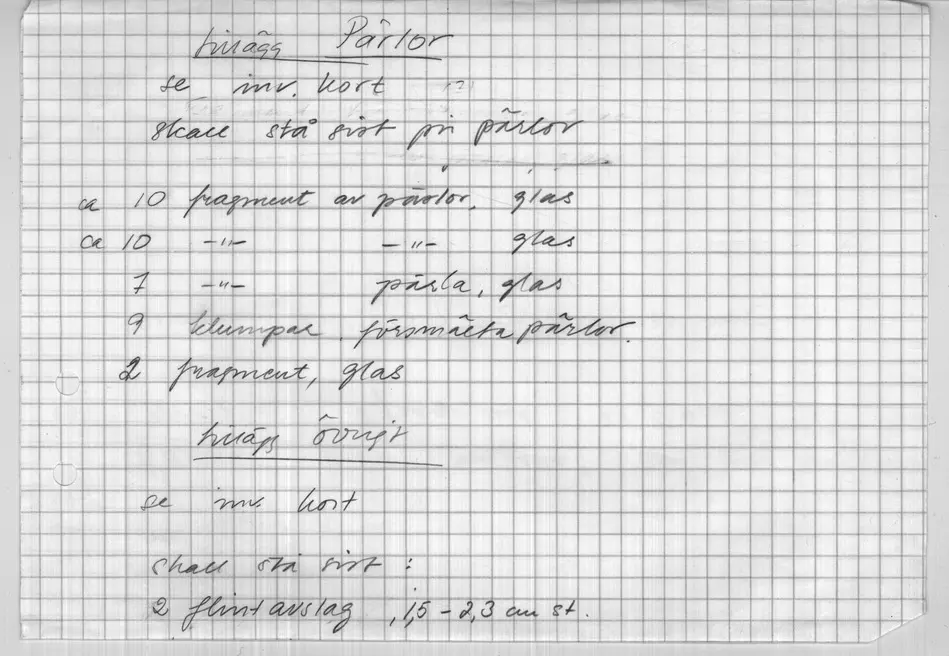 tillägg Pärlor
se inv. kort
skall stå sist på pärlor
ca 10 fragment av pärlor, glas
ca 10 –"– –"– glas
7 –"– pärla, glas
9 klumpar försmälta pärlor.
2 fragment, glas
tillägg övrigt
se inv. kort
skall stå sist :
2 flintavslag , 1,5 – 2,3 cm st.